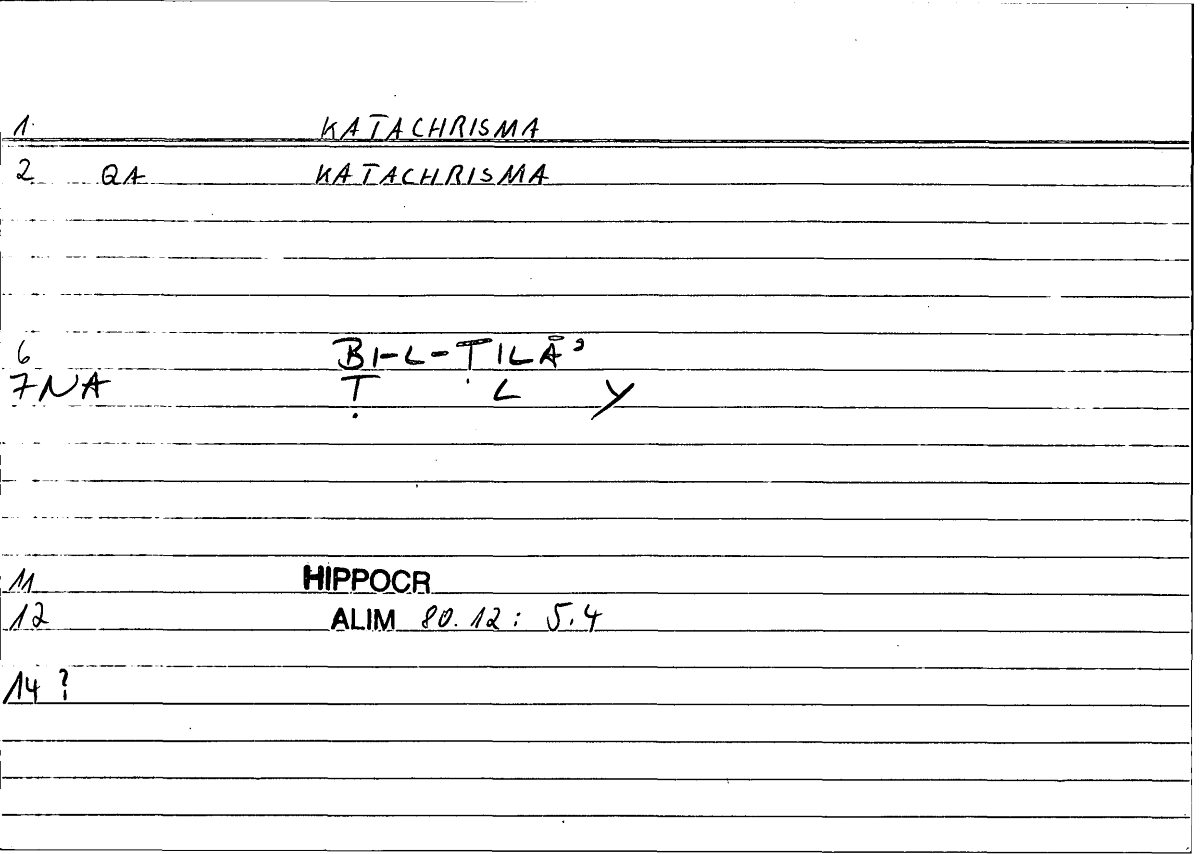 1. KATACHRISMA
2 QA KATACHRISMA
6 BI-L-ṬILĀʾ
7 NA Ṭ L Y
11 HIPPOCR
12 ALIM 80.12: 5.4
14 ?